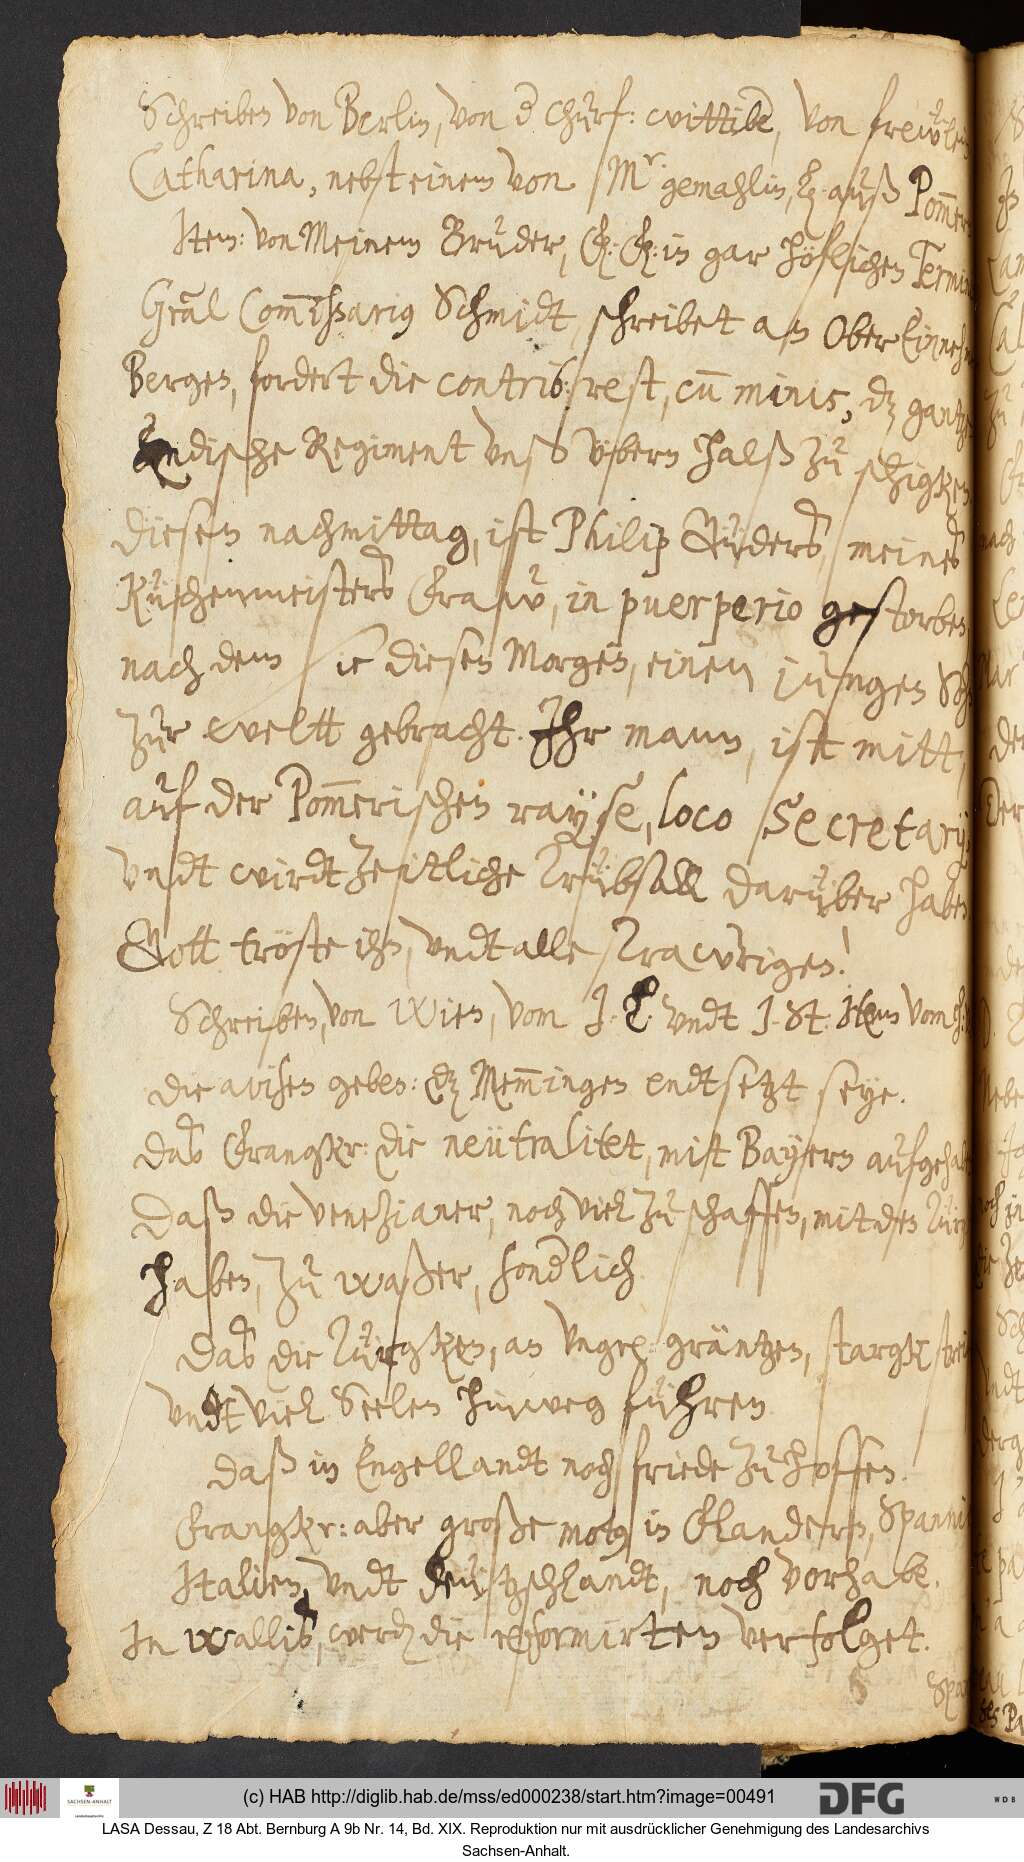 Schreiben von Berlin, von d Churf: wittibe, von frewlein
Catharina, nebst einem von Mr. gemahlin, etc. auß Pom̅ern
Item: von Meinem Bruder, etc. etc. in gar höflichen Termin
Gnãl Com̅ißarius Schmidt, schreibet an Ober Einneh
Bergen, fordert die contrib: rest, cu̅ minis, dz gantze
Endische Regiment vnß vbern halß zu schigken
Diesen nachmittag, ist Philip Güders, meines
Küchenmeisters Fraw, in puerperio gestorben,
nach dem sie diesen Morgen, einen jungen Soh
Zur weltt gebracht. Ihr mann, ist mitt,
auf der Pom̅erischen rayse, loco Secretarij,
vndt wirdt zeitliche Trübsall darüber haben
Gott tröste ihn, vndt alle Trawrigen!
Schreiben, von Wien, vom J. L. vndt J. St. Item vom
Die avisen geben: dz Mem̅ingen endtsetzt seye.
Das Frangkr: die neütralitet, mitt Bayern aufgehab
Daß die Venezianer, noch viel zu schaffen, mit den Türgk
haben, zu waßer, sonderlich
Das die Türgken, an Vnger: gräntzen, stargk strei
vndt viel Seelen hinweg führen
Daß in Engellandt noch friede zu hoffen.
Frangkr: aber große mog in Flandern, Spanni
Italien, vndt Deützschlandt, noch vorhabe.
In Wallis, werden die reformirten verfolget.
Spa
(c) HAB http://diglib.hab.de/mss/ed000238/start.htm?image=00491
SACHSEN-ANHALT
DFG
W D B
LASA Dessau, Z 18 Abt. Bernburg A 9b Nr. 14, Bd. XIX. Reproduktion nur mit ausdrücklicher Genehmigung des Landesarchivs
Sachsen-Anhalt.